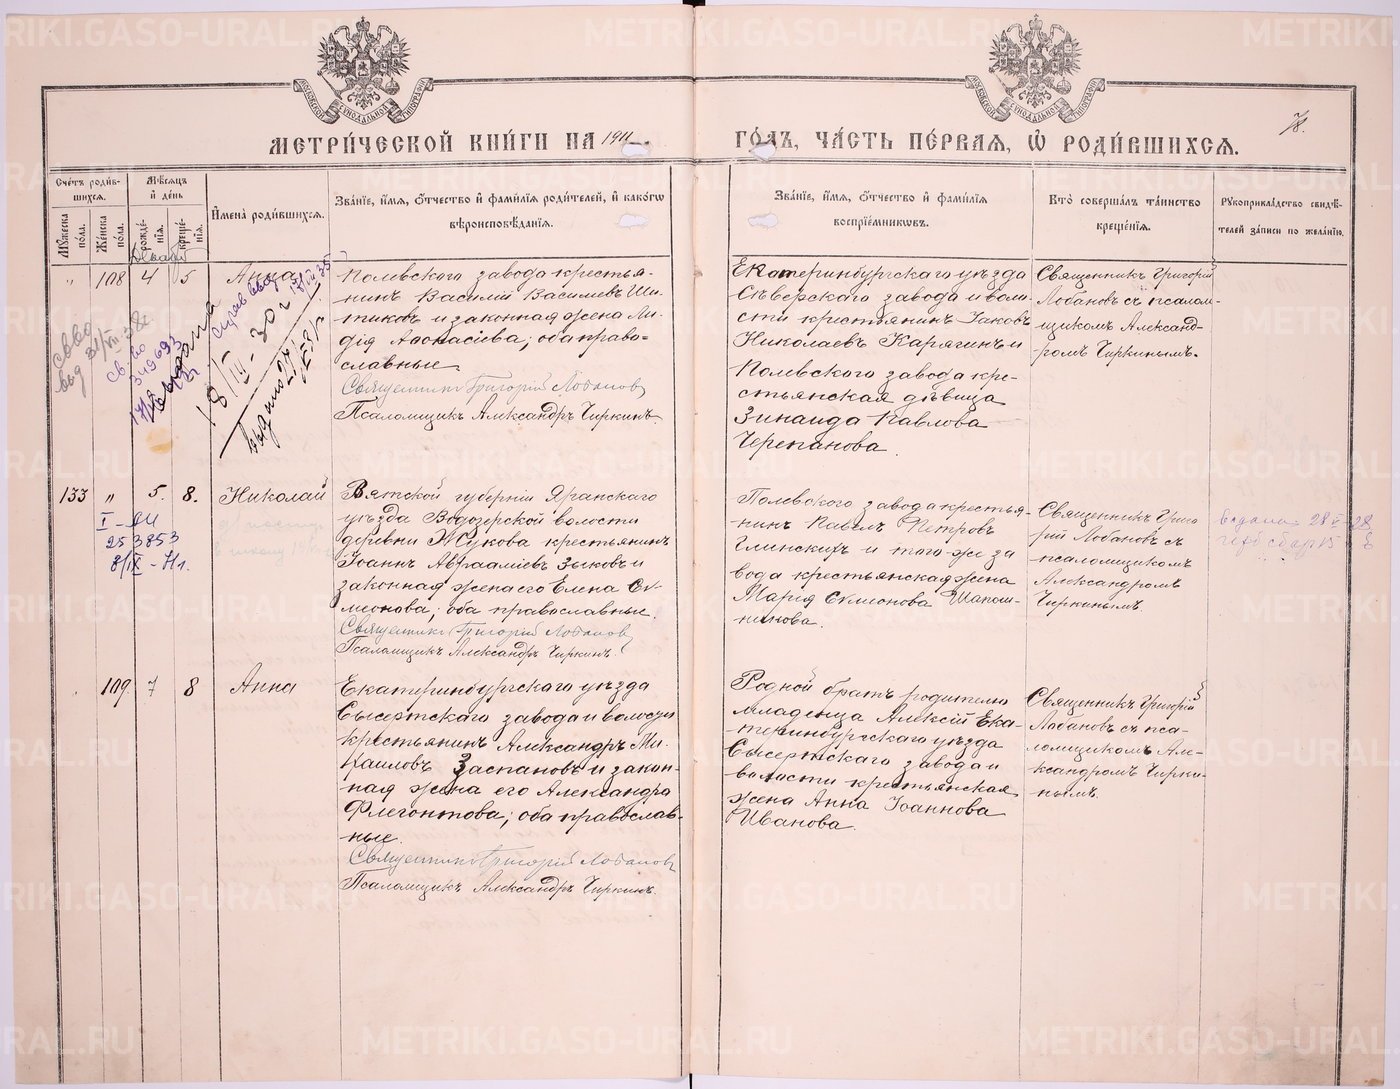 МЕТРИ́ЧЕСКОЙ КНИ́ГИ НА 1911
ГО́ДЪ, ЧА́СТЬ ПЕ́РВАЯ, Ѡ РОДИ́ВШИХСЯ.
78.
Сче́тъ роди́в-
шихся.
Мѣ́сяцъ
и҆ де́нь
Мꙋ́жеска
по́ла.
Же́нска
по́ла.
рожде́-
нія.
креще́-
нія.
И҆мена̀ роди́вшихся.
Зва́нїе, и҆́мя, ѻ҆́тчество и҆ фами́лїя роди́телей, и҆ како́гѡ
вѣроисповѣ́данїя.
Зва́нїе, и҆́мя, ѻ҆́тчество и҆ фами́лїя
воспрїе́мниковъ.
Кто̀ соверша́лъ та́инство
креще́нїя.
Рꙋкоприкла́дство свидѣ́-
телей за́писи по жела́нїю.
Декабр
" 108 4 5 Анна
Полевскаго завода кресть-
янинъ Василій Васильевъ Ши-
тиковъ и законная жена Ли-
дія Аѳанасіева; оба право-
славные
Священникъ Григорій Лобановъ
Псаломщикъ Александръ Чиркинъ
Екатеринбургскаго уѣзда
Сѣверскаго завода и воло-
сти крестьянинъ Іаковъ
Николаевъ Карягинъ и
Полевскаго завода кре-
стьянская дѣвица
Зинаида Павлова
Черепанова
Священникъ Григорій
Лобановъ съ псалом-
щикомъ Александ-
ромъ Чиркинымъ.
349693
18/III-30 г
выдано
133 " 5. 8. Николай
I-ЛИ
253853
8/IX-71 г.
Вятской губерніи Яранскаго
уѣзда Водозерской волости
деревни Жукова крестьянинъ
Іоаннъ Авраамiевъ Зыковъ и
законная жена его Елена Си-
меонова; оба православные.
Священникъ Григорій Лобановъ
Псаломщикъ Александръ Чиркинъ.
Полевскаго завода крестья-
нинъ Павелъ Петровъ
Глинскихъ и того-же за
вода крестьянская жена
Мария Симеонова Шапош-
никова.
Священникъ Григо
рій Лобановъ съ
псаломщикомъ
Александромъ
Чиркинымъ
выдана 28 V-28
109. 7 8 Анна
Екатеринбургскаго уѣзда
Сысертскаго завода и волости
крестьянинъ Александръ Ми-
хаиловъ Заспановъ и закон-
ная жена его Александра
Флегонтова; оба православ-
ные.
Священникъ Григорій Лобановъ
Псаломщикъ Александръ Чиркинъ.
Родной братъ родителю
младенца Алексѣй Ека-
теринбургскаго уѣзда
Сысертскаго завода и
волости крестьянская
жена Анна Іоаннова
Иванова.
Священникъ Григорій
Лобановъ съ пса-
ломщикомъ Але-
ксандромъ Чирки-
нымъ.
METRIKI.GASO-URAL.RU